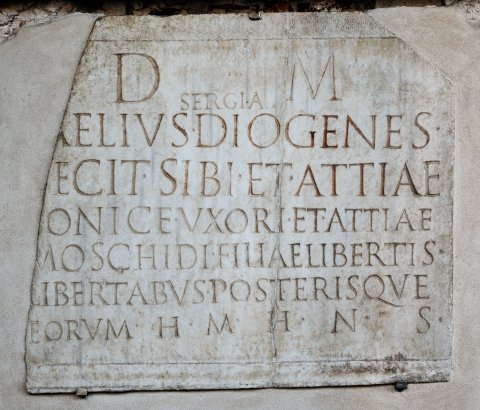 D M
SERGIA
AELIVS·DIOGENES·
FECIT·SIBI·ET·ATTIAE
ONICE·VXORI·ET·ATTIAE
MOSCHIDI·FILIAE·LIBERTIS·
LIBERTABVS·POSTERISQVE
EORVM H M H N S